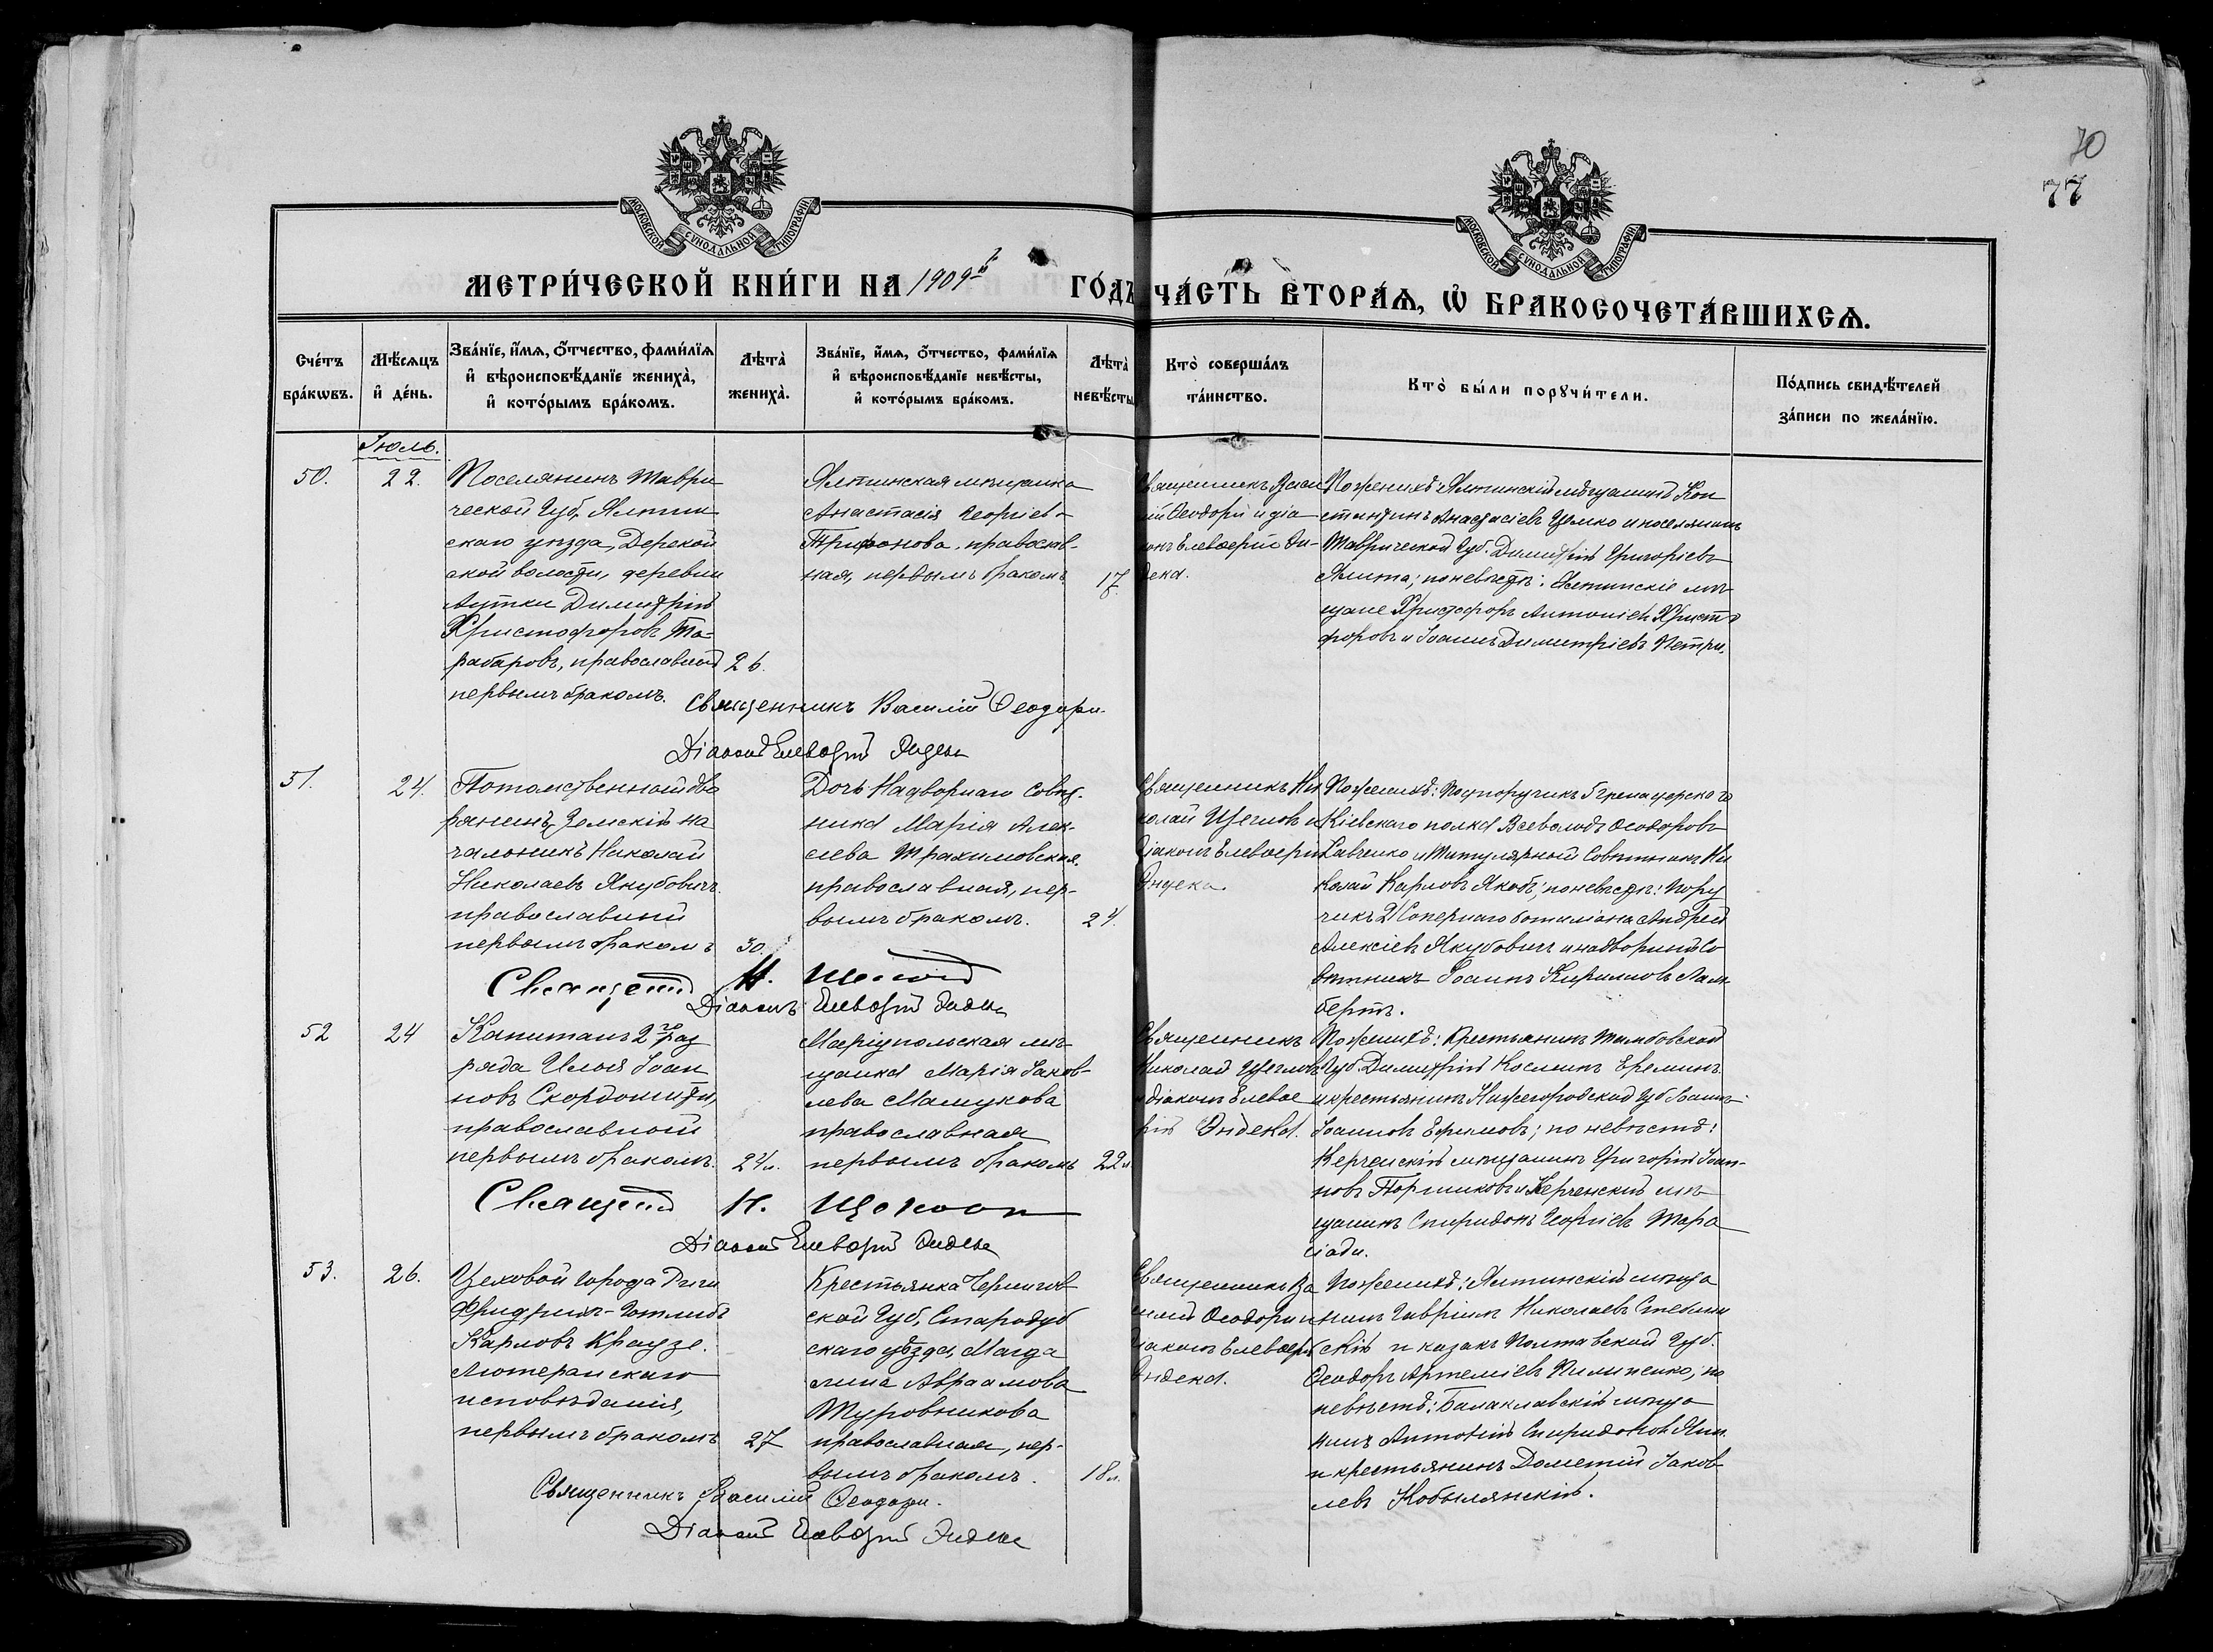 70
77
МОСКОВСКОЙ СУНОДАЛЬНОЙ ТИПОГРАФІИ
МОСКОВСКОЙ СУНОДАЛЬНОЙ ТИПОГРАФІИ
МЕТРИ́ЧЕСКОЙ КНИ́ГИ НА 1909й ГО́ДЪ ЧА́СТЬ ВТОРА́Ѧ, Ѡ҆ БРАКОСОЧЕТА́ВШИХСѦ.
Сче́тъ
бра́кѡвъ.
Мѣ́сѧцъ
и҆ де́нь.
Зва́нїе, и҆́мѧ, ѻ҆́тчество, фами́лїѧ
и҆ вѣроисповѣ́данїе жениха̀,
и҆ кото́рымъ бра́комъ.
Лѣта̀
жениха̀.
Зва́нїе, и҆́мѧ, ѻ҆́тчество, фами́лїѧ
и҆ вѣроисповѣ́данїе невѣ́сты,
и҆ кото́рымъ бра́комъ.
Лѣта̀
невѣ́сты
Кто̀ соверша́лъ
та́инство.
Кто̀ бы́ли порꙋчи́тели.
По́дпись свидѣ́телей
за́писи по жела́нїю.
Іюль.
50.
22.
Поселянинъ Таври
ческой Губ. Ялтин
скаго уѣзда, Дерекой
ской волости, деревни
Аутки Димитрій
Христофоровъ Та-
рабаровъ, православный
первымъ бракомъ.
26.
Ялтинская мѣщанка
Анастасія Георгіев-
Трифонова, православ-
ная, первымъ бракомъ
17.
Священникъ Васи
лій Ѳеодори и діа
конъ Елевѳерій Эн-
дека.
По женихѣ: Ялтинскій мѣщанинъ Кон
стантинъ Анастасіевъ и поселянинъ
Таврической Губ. Димитрій Григоріевъ
по невѣстѣ: Ялтинскіе мѣ
щане Христофоръ Антоніевъ Христо
форовъ и Іоаннъ Димитріевъ Петри.
Священникъ Василій Ѳеодори.
Діаконъ Елевѳерій Эндека
51.
24.
Потомственный дво
рянинъ, Земскій на
чальникъ Николай
Николаевъ Якубовичъ
православный
первымъ бракомъ
30.
Дочь Надворнаго Совѣт-
ника Марія Алек-
сѣева Трахимовская.
православная, пер-
вымъ бракомъ.
24.
Священникъ Ни
колай Щегловъ и
діаконъ Елевѳерій
Эндека.
По женихѣ: Подпоручикъ 5 Гренадерскаго
Кіевскаго полка Всеволодъ Ѳеодоровъ
Савченко и Титулярный Совѣтникъ Ни
колай Карловъ Якобъ; по невѣстѣ: Пору
чикъ 21 Сапернаго баталіона Андрей
Алексіевъ Якубовичъ и надворный Со
вѣтникъ Іоаннъ Кирилловъ Лам
бертъ.
Священникъ Н. Щегловъ
Діаконъ Елевѳерій Эндека
52
24
Капитанъ 2го раз
ряда Илья Іоан
новъ Скордомити,
православный
первымъ бракомъ.
24 л.
Маріупольская мѣ-
щанка Марія Іаков-
лева Мамукова
православная
первымъ бракомъ
22 л
Священникъ
Николай Щегловъ
и діаконъ Елевѳе
рій Эндека.
По женихѣ: Крестьянинъ Тамбовской
Губ. Димитрій Косминъ Ереминъ
и крестьянинъ Нижегородской Губ Іоаннъ
Іоанновъ Ефимовъ; по невѣстѣ:
Керченскій мѣщанинъ Григорій Іоан-
новъ и Керченскій мѣ
щанинъ Спиридонъ Георгіевъ Тара
сіади.
Священникъ Н. Щегловъ
Діаконъ Елевѳерій Эндека
53.
26.
Цеховой города Риги
Фридрихъ-Готлибъ
Карловъ Краузе.
Лютеранскаго
исповѣданія,
первымъ бракомъ
27
Крестьянка Чернигов
ской Губ, Стародуб
скаго уѣзда, Магда
лина Авраамова
Туровникова
православная, пер-
вымъ бракомъ.
18 л.
Священникъ Ва
силій Ѳеодори и
діаконъ Елевѳерій
Эндека.
По женихѣ: Ялтинскій мѣща
нинъ Гавріилъ Николаевъ
скій и казакъ Полтавской Губ.
Ѳеодоръ Артеміевъ Пилипенко; по
невѣстѣ: Балаклавскій мѣща
нинъ Спиридоновъ
и крестьянинъ Дометій Іаков
левъ Кобылянскій.
Священникъ Василій Ѳеодори.
Діаконъ Елевѳерій Эндека